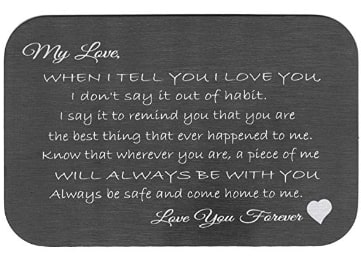 My Love,
WHEN I TELL YOU I LOVE YOU,
I don't say it out of habit.
I say it to remind you that you are
the best thing that ever happened to me.
Know that wherever you are, a piece of me
WILL ALWAYS BE WITH YOU
Always be safe and come home to me.
Love You Forever